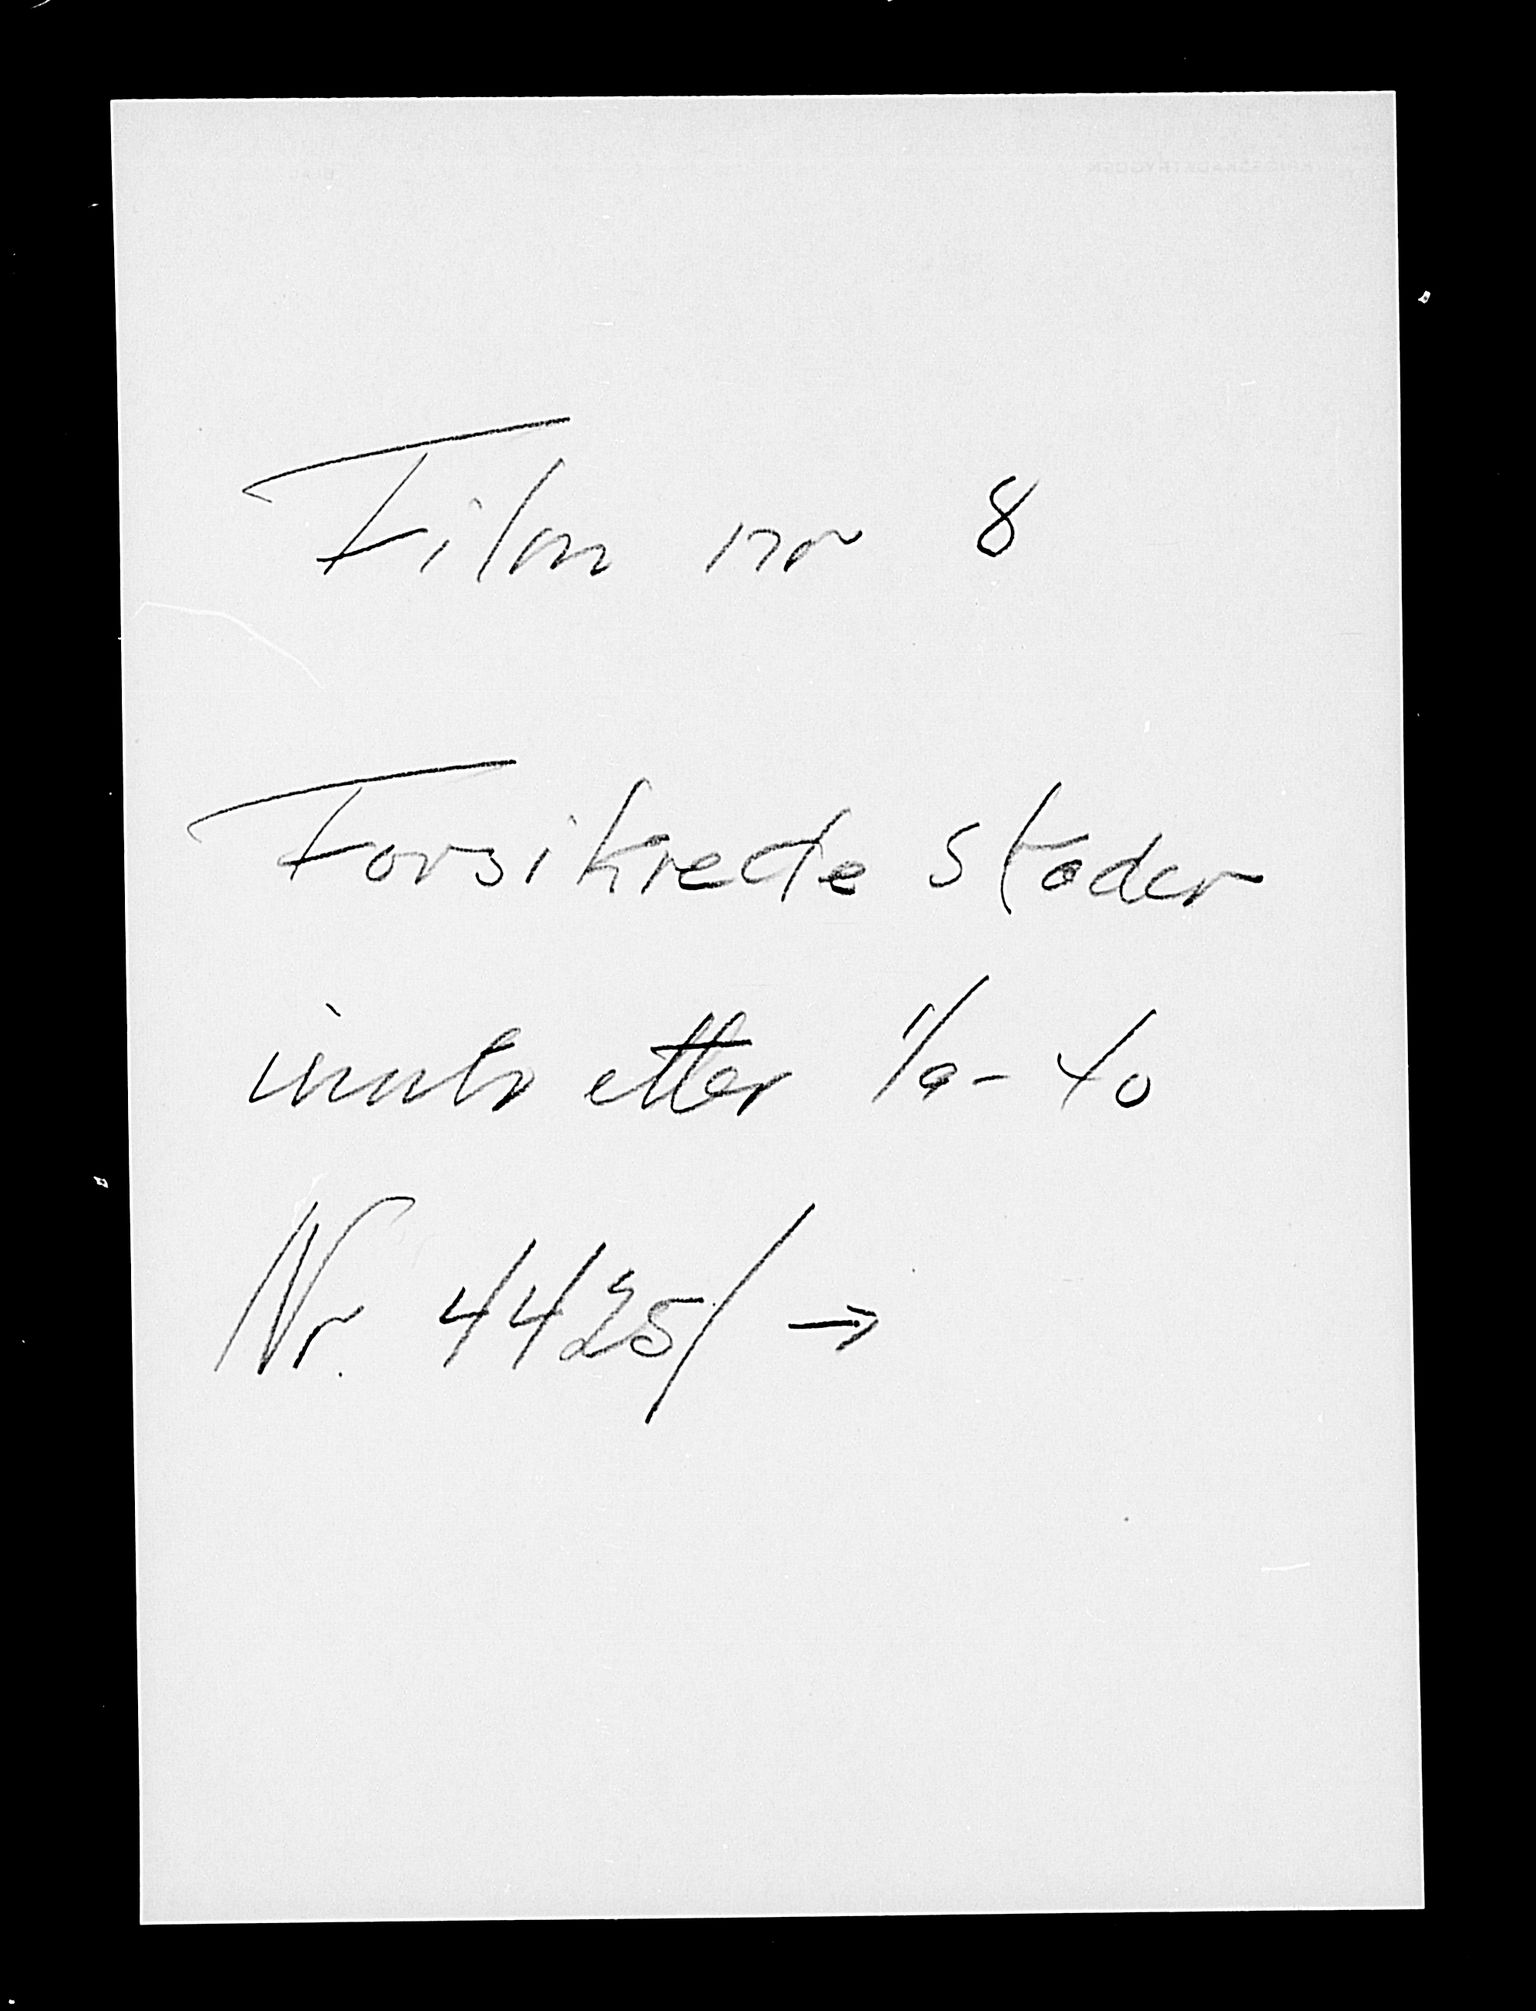 Film nr 8
Forsikrede skader
inntr etter 1/9-40
Nr. 4425/ →